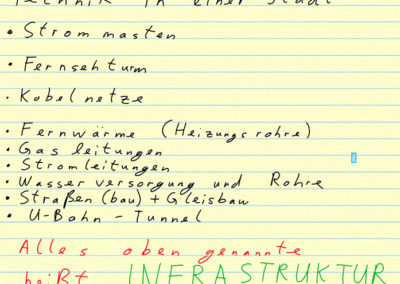 Technik in einer Stadt
• Strommasten
• Fernsehturm
• Kabelnetze
• Fernwärme (Heizungsrohre)
• Gasleitungen
• Stromleitungen
• Wasserversorgung und Rohre
• Straßen(bau) + Gleisbau
• U-Bahn-Tunnel
Alles oben genannte
heißt INFRASTRUKTUR